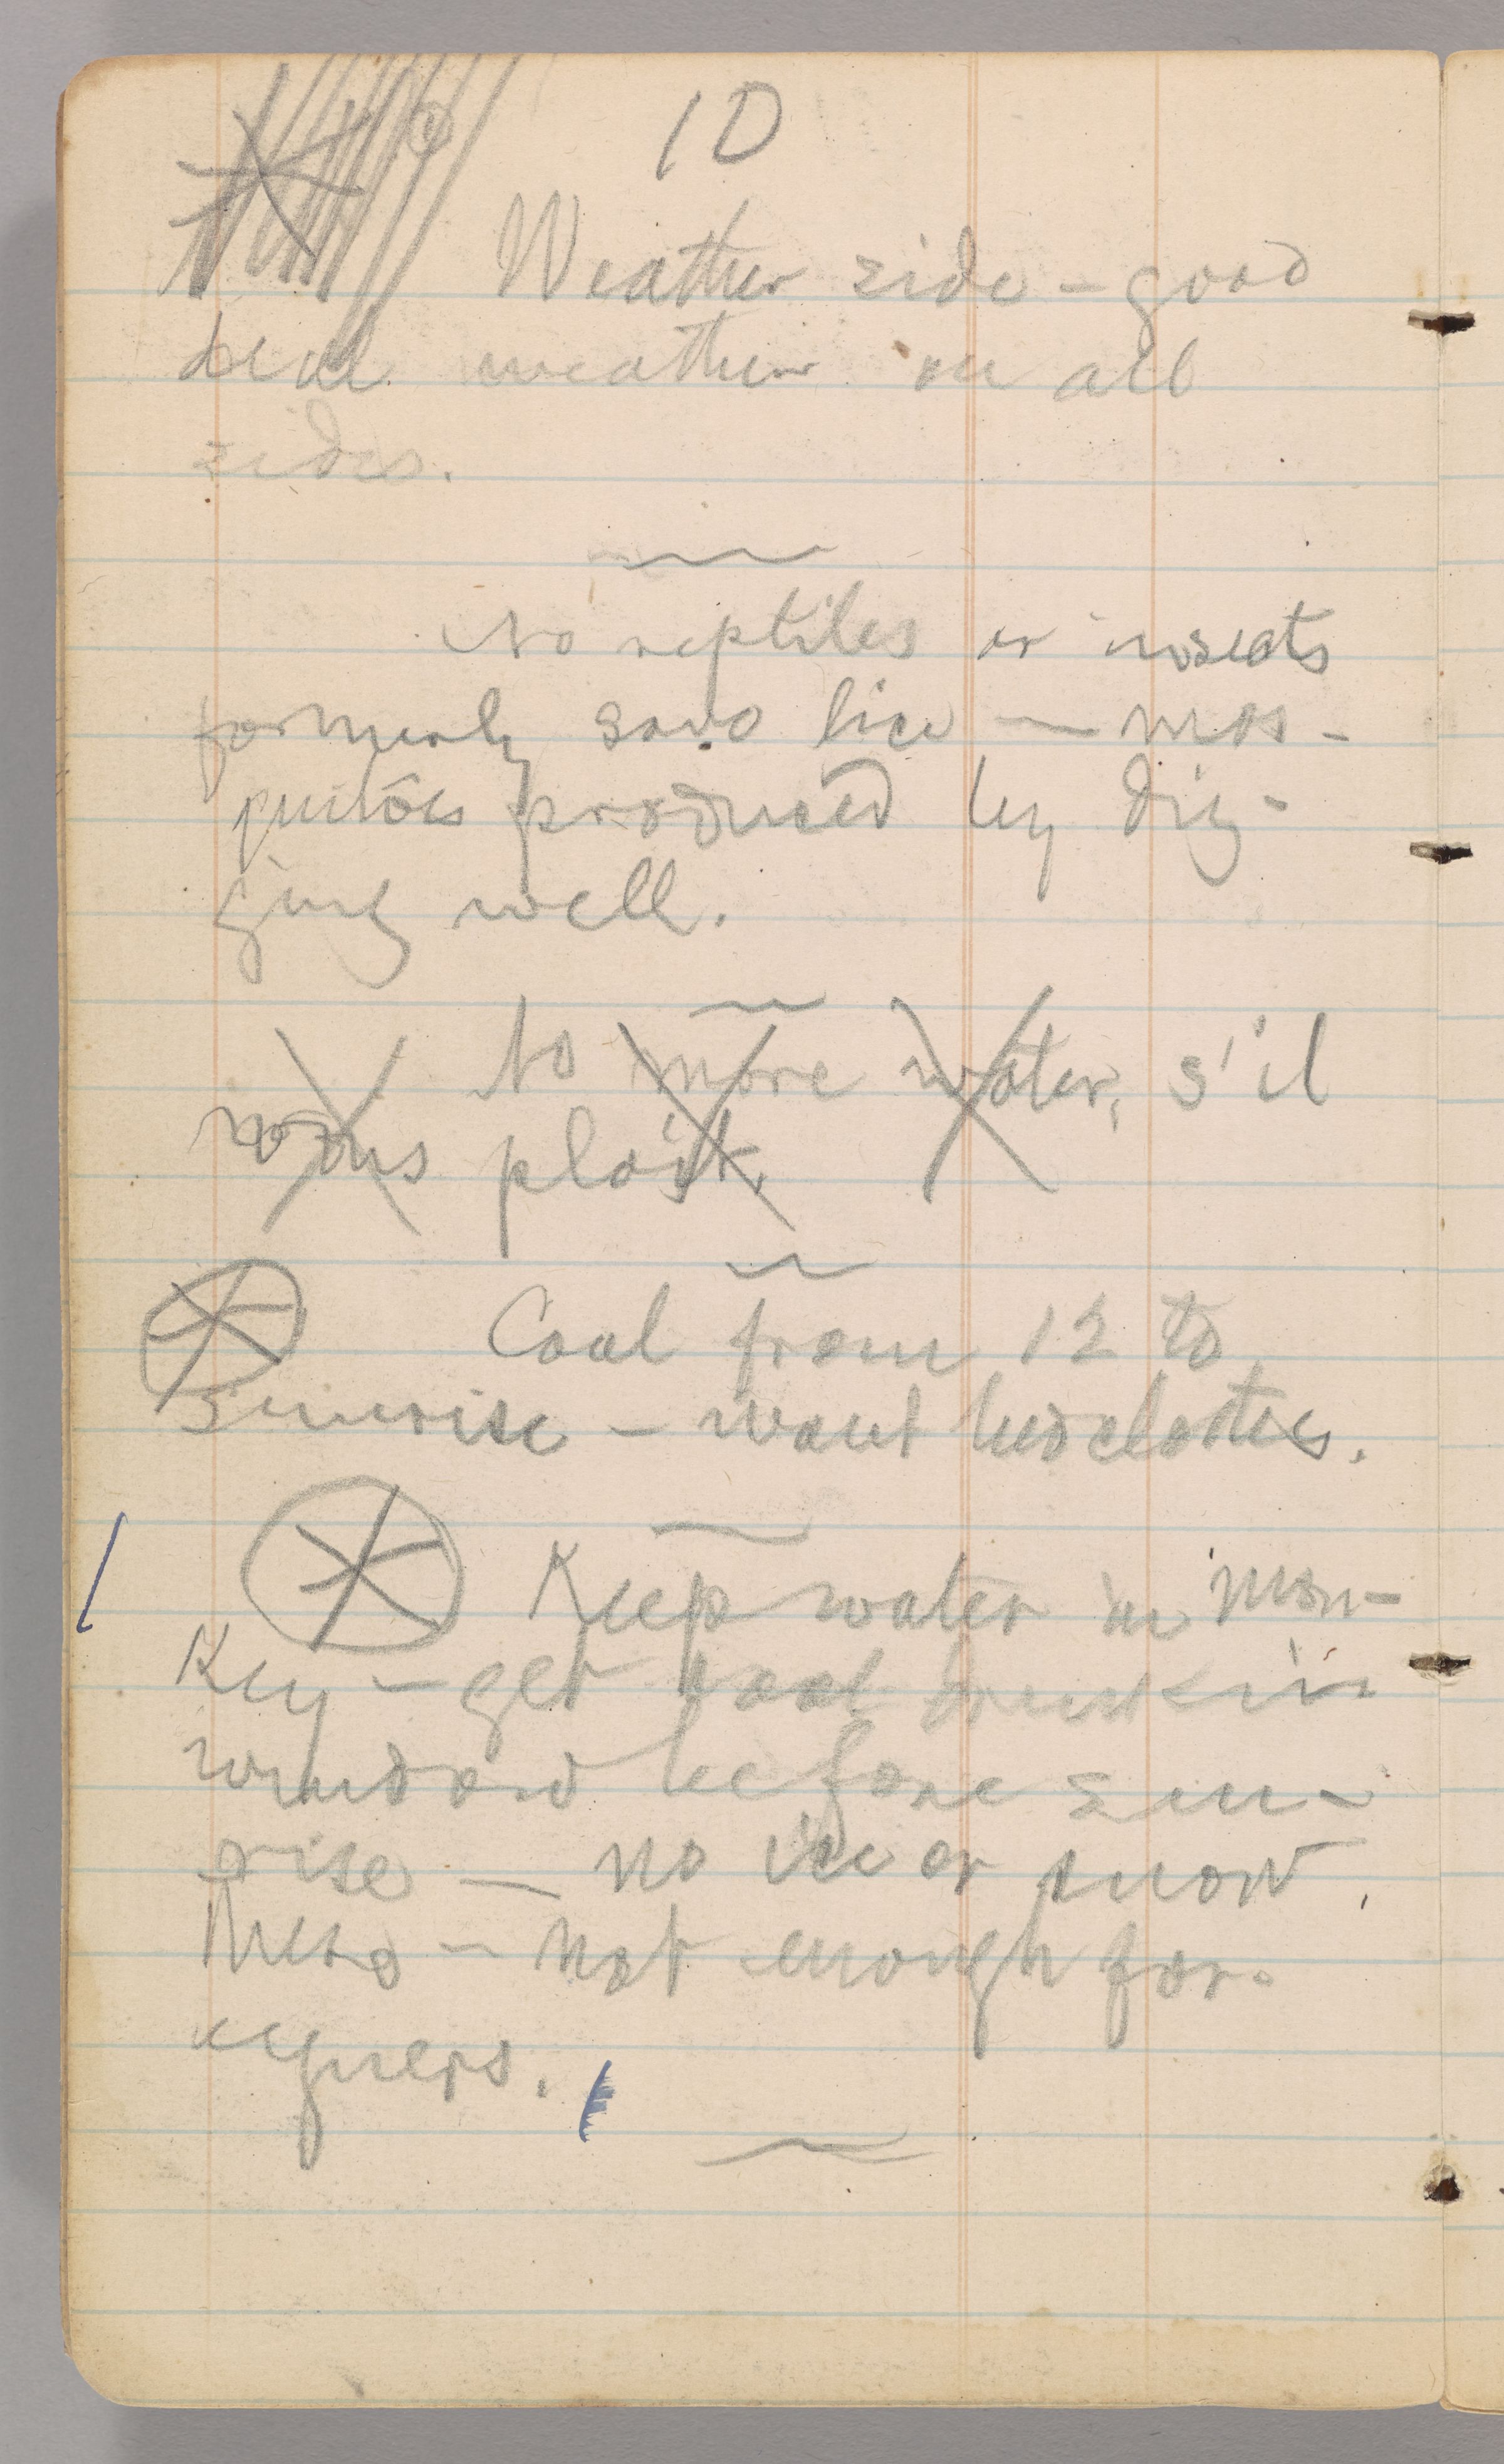 10
Weather side – good
deal weather on all
sides.
No reptiles or insects
formerly save lice — mos-
quitoes produced by dig-
ging well.
No more water, s'il
vous plait.
Cool from 12 to
sunrise – want bedclothes.
Keep water in mon-
key – get cool drink in
window before sun-
rise — no ice or snow
here – not enough for-
eigners.